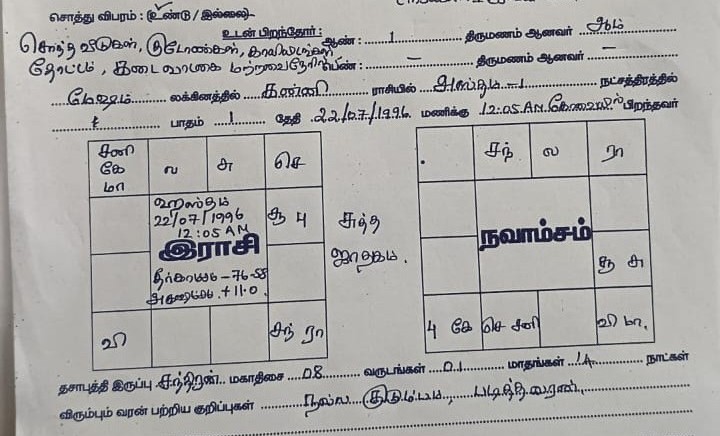 சொத்து விபரம் : (உண்டு / இல்லை)
உடன் பிறந்தோர் :
சொந்த வீடுகள், குடோன்கள், காலியிடங்கள் ஆண் : 1 திருமணம் ஆனவர் ஆம்
தோட்டம், கடை வாடகை பெண் : – திருமணம் ஆனவர் –
மேஷம் லக்கினத்தில் கன்னி ராசியில் அஸ்தம் – 1 நட்சத்திரத்தில்
பாதம் 1 தேதி 22/07/1996 மணிக்கு 12:05 AM கோவையில் பிறந்தவர்
சனி கே மா
ல
சு
செ
சந்
ல
ரா
ஹஸ்தம்
22/07/1996
12:05 AM
இராசி
சூ பு
சுத்த
ஜாதகம்.
நவாம்சம்
சூ சு
தீர்காம்சம் – 76-58
அட்சாம்சம் + 11.0
வி
சந் ரா
பு கே
செ சனி
வி மா.
தசாபுத்தி இருப்பு சந்திரன் மகாதிசை 08 வருடங்கள் 01 மாதங்கள் 14 நாட்கள்
விரும்பும் வரன் பற்றிய குறிப்புகள் நல்ல குடும்பம், படித்தவரான,